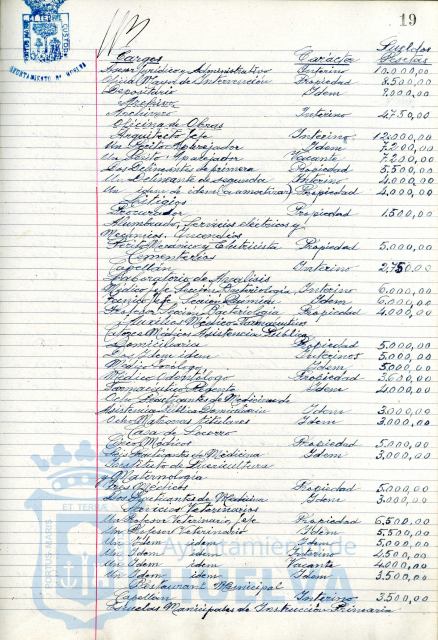 19
Cargos Carácter Sueldos Pesetas
Asesor Jurídico y Administrativo Interino 10.000,00
Oficial Mayor de Intervención Propiedad 8.500,00
Depositario Idem 8.000,00
Archivo
Archivero Interino 4.750,00
Oficina de Obras
Arquitecto Jefe Interino 12.000,00
Un Perito Aparejador Idem 7.200,00
Un Perito Aparejador Vacante 7.200,00
Dos Delineantes de primera Propiedad 5.500,00
Un Delineante de segunda Interino 4.000,00
Un idem de idem (a amortizar) Propiedad 4.000,00
Litigios
Procurador Propiedad 1.500,00
Alumbrado, Servicios eléctricos y
Mecánicos. Incendios
Perito Mecánico y Electricista Propiedad 5.000,00
Cementerios
Capellán Interino 2.750,00
Laboratorio de Análisis
Médico Jefe Sección Bacteriología Interino 6.000,00
Químico Jefe Sección Química Idem 6.000,00
Profesor Sección Bacteriología Propiedad 4.000,00
Auxilios Médico Farmacéutico
Médicos Asistencia Pública
Domiciliaria Propiedad 5.000,00
Dos Idem idem Interinos 5.000,00
Médico Tocólogo Idem 5.000,00
Médico Odontólogo Propiedad 3.600,00
Farmacéutico Regente Idem 4.000,00
Ocho Practicantes de Medicina de
Asistencia Pública Domiciliaria Idem 3.000,00
Ocho Matronas titulares Idem 3.000,00
Casa de Socorro
Cinco Médicos Propiedad 5.000,00
Seis Practicantes de Medicina Idem 3.000,00
Instituto de Puericultura
y Maternología
Tres Médicos Propiedad 5.000,00
Dos Practicantes de Medicina Idem 3.000,00
Servicios Veterinarios
Un Profesor Veterinario, Jefe Propiedad 6.500,00
Un Profesor Veterinario Idem 5.500,00
Un Idem idem Idem 5.000,00
Un Idem idem Interino 4.500,00
Un Idem idem Vacante 4.000,00
Un Idem idem Idem 3.500,00
Restaurant Municipal
Capellán Interino 3.500,00
Escuelas Municipales de Instrucción Primaria
AYUNTAMIENTO DE HUELVA
Ayuntamiento de
HUELVA